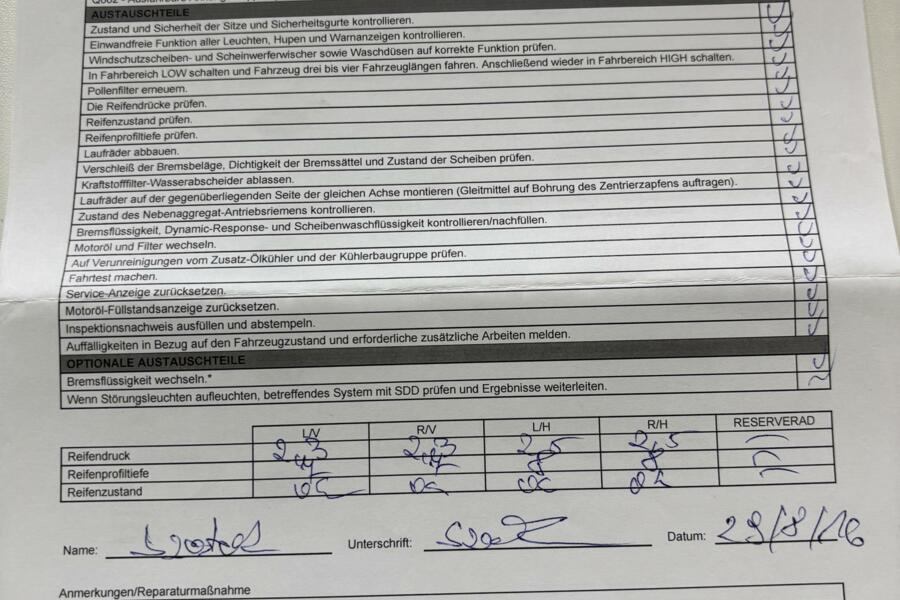 AUSTAUSCHTEILE
Zustand und Sicherheit der Sitze und Sicherheitsgurte kontrollieren.
Einwandfreie Funktion aller Leuchten, Hupen und Warnanzeigen kontrollieren.
Windschutzscheiben- und Scheinwerferwischer sowie Waschdüsen auf korrekte Funktion prüfen.
In Fahrbereich LOW schalten und Fahrzeug drei bis vier Fahrzeuglängen fahren. Anschließend wieder in Fahrbereich HIGH schalten.
Pollenfilter erneuern.
Die Reifendrücke prüfen.
Reifenzustand prüfen.
Reifenprofiltiefe prüfen.
Laufräder abbauen.
Verschleiß der Bremsbeläge, Dichtigkeit der Bremssättel und Zustand der Scheiben prüfen.
Kraftstofffilter-Wasserabscheider ablassen.
Laufräder auf der gegenüberliegenden Seite der gleichen Achse montieren (Gleitmittel auf Bohrung des Zentrierzapfens auftragen).
Zustand des Nebenaggregat-Antriebsriemens kontrollieren.
Bremsflüssigkeit, Dynamic-Response- und Scheibenwaschflüssigkeit kontrollieren/nachfüllen.
Motoröl und Filter wechseln.
Auf Verunreinigungen vom Zusatz-Ölkühler und der Kühlerbaugruppe prüfen.
Fahrtest machen.
Service-Anzeige zurücksetzen.
Motoröl-Füllstandsanzeige zurücksetzen.
Inspektionsnachweis ausfüllen und abstempeln.
Auffälligkeiten in Bezug auf den Fahrzeugzustand und erforderliche zusätzliche Arbeiten melden.
OPTIONALE AUSTAUSCHTEILE
Bremsflüssigkeit wechseln.*
Wenn Störungsleuchten aufleuchten, betreffendes System mit SDD prüfen und Ergebnisse weiterleiten.
L/V R/V L/H R/H RESERVERAD
Reifendruck 2,3 2,3 2,5 2,5
Reifenprofiltiefe 8 8
Reifenzustand
Name: Unterschrift: Datum: 29/8/16
Anmerkungen/Reparaturmaßnahme